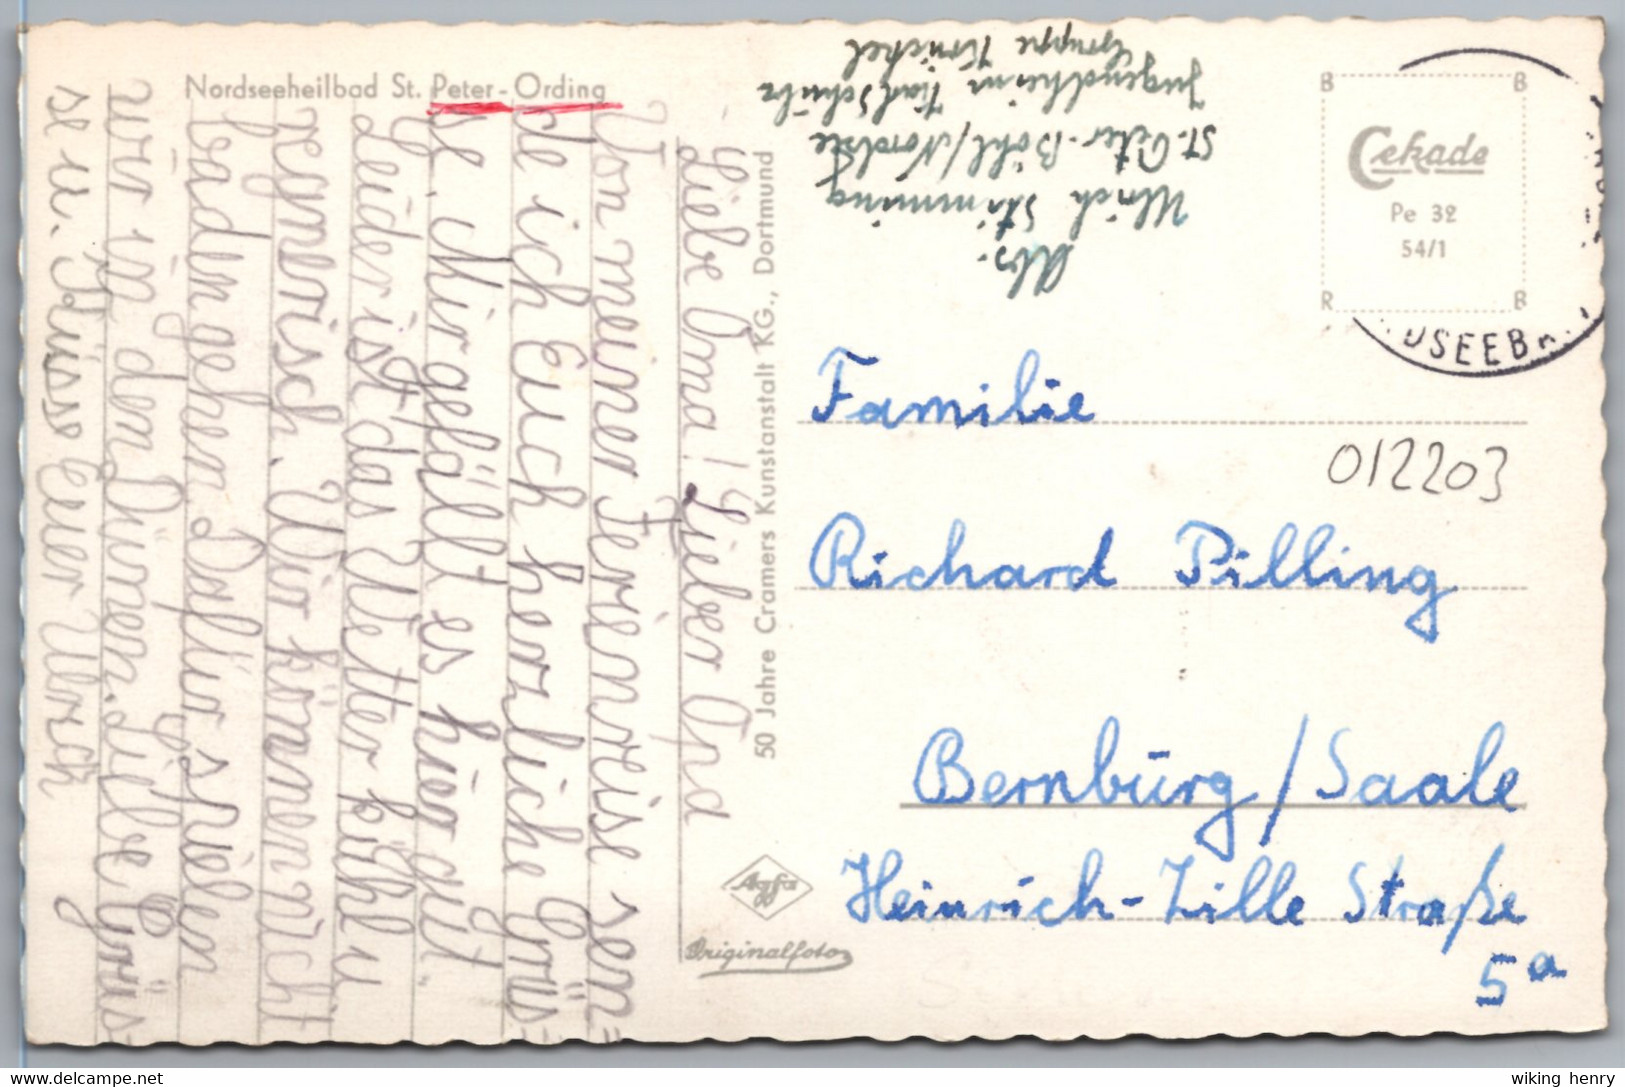 Nordseeheilbad St. Peter-Ording
Liebe Oma! Lieber Opa
Von meiner Ferienreise sen=
de ich Euch herzliche Grüs=
se. Mir gefällt es hier gut.
Leider ist das Wetter kühl u.
regnerisch. Wir können nicht
baden gehen. Dafür spielen
wir in den Dünen. Liebe Grüs
se u. Küsse Euer Ulrich
50 Jahre Cramers Kunstanstalt KG., Dortmund
Agfa
Originalfoto
Abs.
Ulrich Stimming
St. Peter-Böhl/Nordsee
Jugendheim Karl Schütz
Gruppe Künkel
B B
Cekade
Pe 32
54/1
R B
DSEEBA
Familie
012203
Richard Pilling
Bernburg/Saale
Heinrich-Zille Straße
5a
delcampe.net
wiking henry